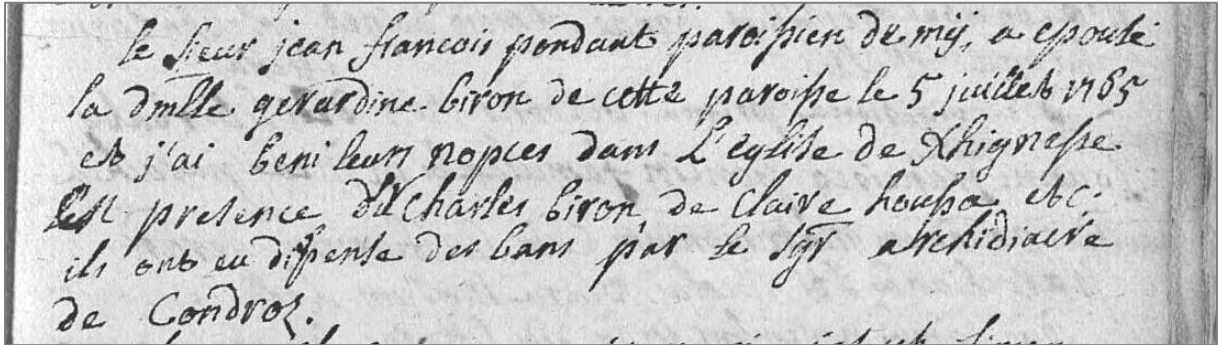 le sieur jean francois pondant paroissien de my, a epousé
la dmlle gerardine biron de cette paroisse le 5 juillet 1765
et j'ai beni leurs nopces dans L'eglise de Xhignesse
presence du Sr charles biron, de claire houssa etc.
ils ont eu dispense des bans par le sgr archidiacre
de Condroz.